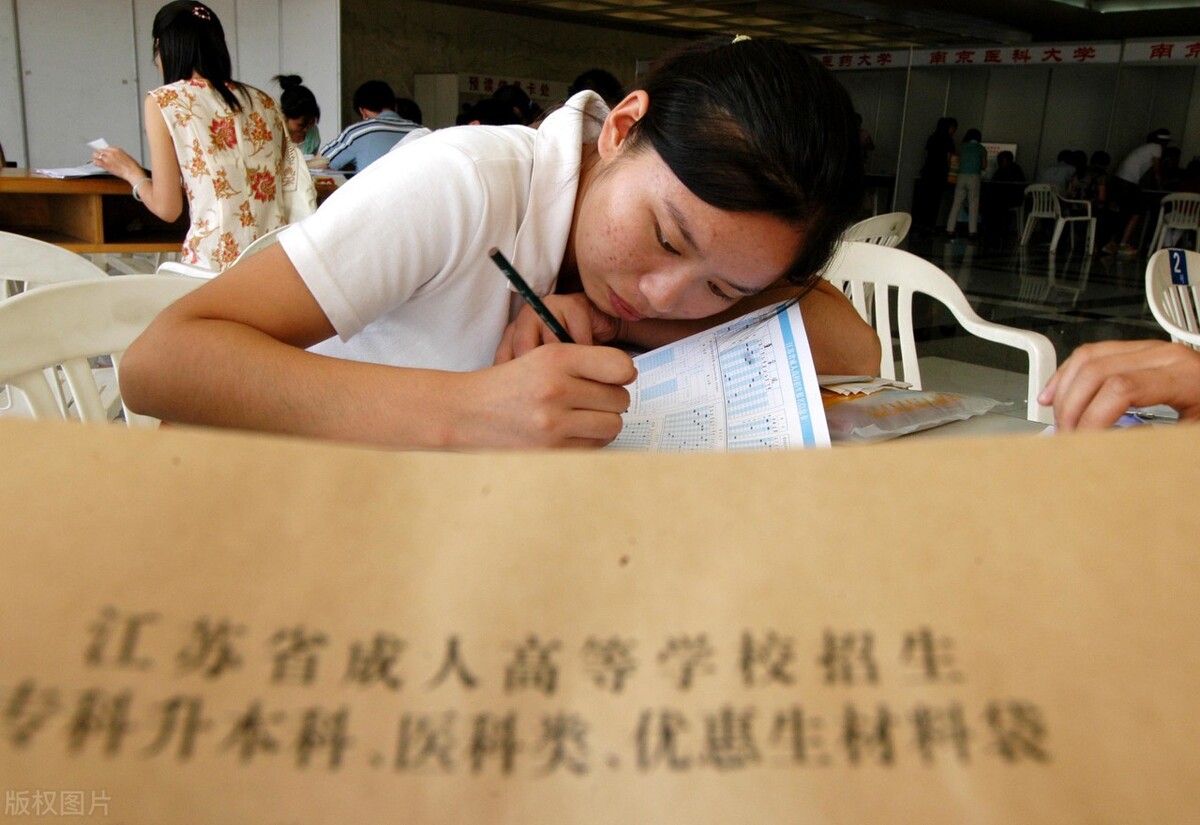 医药大学
南京医科大学
南京
2
江苏省成人高等学校招生
专科升本科、医科类、优惠生材料袋
版权图片